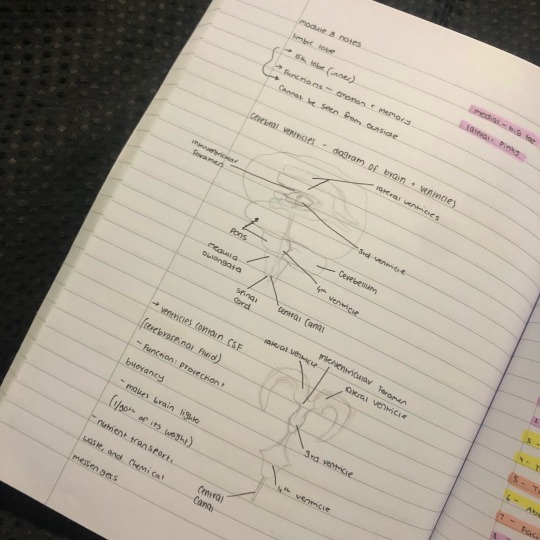 module 8 notes
limbic lobe
→ 5th lobe (inner)
→ Functions - emotion + memory
→ Cannot be seen from outside
medial - big toe
lateral - pinky
cerebral ventricles - diagram of brain + ventricles
interventricular
Foramen
lateral ventricles
Pons
3rd ventricle
medulla
oblongata
Cerebellum
4th ventricle
spinal
cord
central canal
→ ventricles contain CSF
(cerebrospinal fluid)
- Function: protection +
buoyancy
- makes brain lighter
- nutrient transport,
waste, and chemical
messengers
lateral ventricle
interventricular Foramen
lateral ventricle
3rd ventricle
4th ventricle
central
canal
3 -
4 - T
5 - T
6 - Ab
7 - Faci